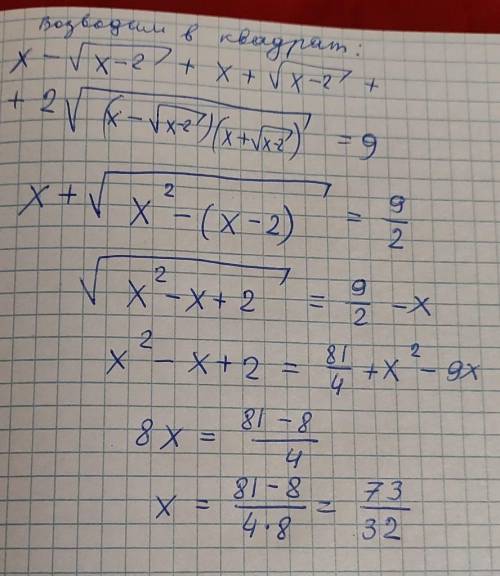 возводим в квадрат:
x - √(x-2) + x + √(x-2) +
+ 2√((x - √(x-2))(x + √(x-2))) = 9
x + √(x² - (x-2)) = 9/2
√(x² - x + 2) = 9/2 - x
x² - x + 2 = 81/4 + x² - 9x
8x = (81-8)/4
x = (81-8)/(4·8) = 73/32